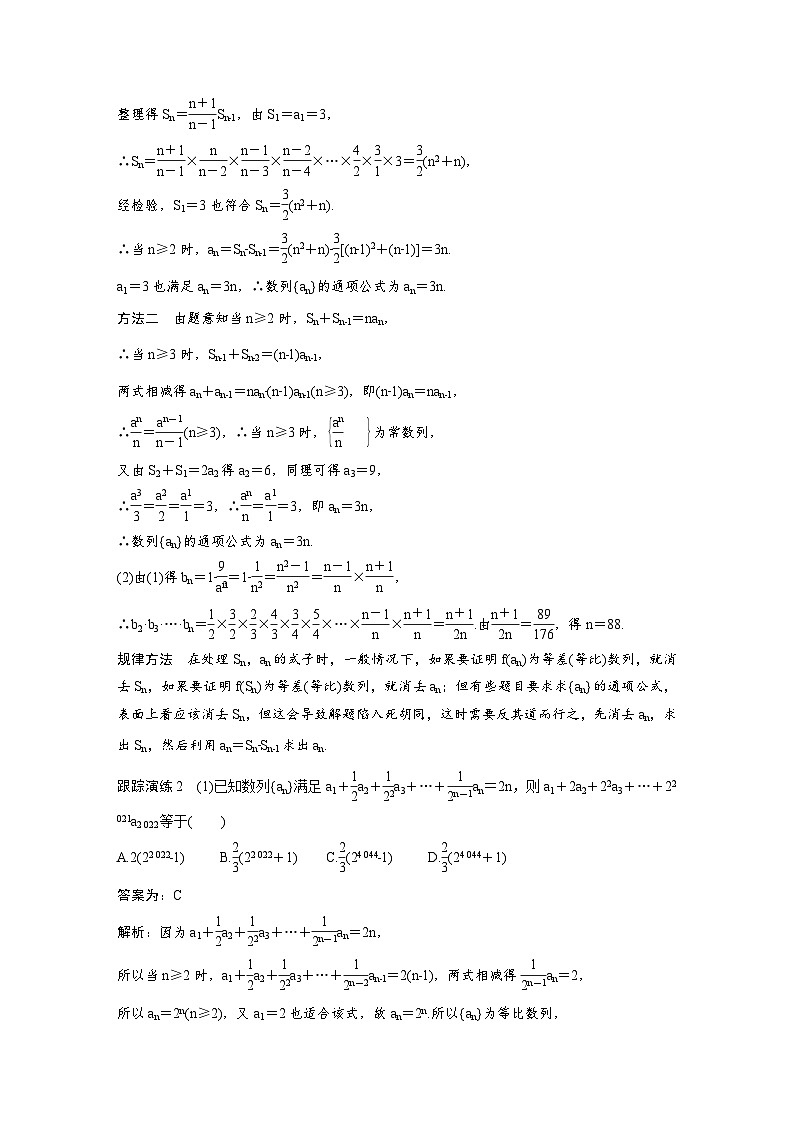 整理得 Sₙ＝\frac{n＋1}{n－1}Sₙ₋₁，由 S₁＝a₁＝3，
∴Sₙ＝\frac{n＋1}{n－1}×\frac{n}{n－2}×\frac{n－1}{n－3}×\frac{n－2}{n－4}×…×\frac{4}{2}×\frac{3}{1}×3＝\frac{3}{2}(n²＋n)，
经检验，S₁＝3 也符合 Sₙ＝\frac{3}{2}(n²＋n).
∴当 n≥2 时，aₙ＝Sₙ-Sₙ₋₁＝\frac{3}{2}(n²＋n)-\frac{3}{2}[(n-1)²＋(n-1)]＝3n.
a₁＝3 也满足 aₙ＝3n，∴数列{aₙ}的通项公式为 aₙ＝3n.
方法二　由题意知当 n≥2 时，Sₙ＋Sₙ₋₁＝naₙ，
∴当 n≥3 时，Sₙ₋₁＋Sₙ₋₂＝(n-1)aₙ₋₁，
两式相减得 aₙ＋aₙ₋₁＝naₙ-(n-1)aₙ₋₁(n≥3)，即(n-1)aₙ＝naₙ₋₁，
∴\frac{an}{n}＝\frac{an－1}{n－1}(n≥3)，∴当 n≥3 时，{\frac{an}{n}}为常数列，
又由 S₂＋S₁＝2a₂ 得 a₂＝6，同理可得 a₃＝9，
∴\frac{a3}{3}＝\frac{a2}{2}＝\frac{a1}{1}＝3，∴\frac{an}{n}＝\frac{a1}{1}＝3，即 aₙ＝3n，
∴数列{aₙ}的通项公式为 aₙ＝3n.
(2)由(1)得 bₙ＝1-\frac{9}{a}＝1-\frac{1}{n²}＝\frac{n²－1}{n²}＝\frac{n－1}{n}×\frac{n＋1}{n}，
∴b₂·b₃·…·bₙ＝\frac{1}{2}×\frac{3}{2}×\frac{2}{3}×\frac{4}{3}×\frac{3}{4}×\frac{5}{4}×…×\frac{n－1}{n}×\frac{n＋1}{n}＝\frac{n＋1}{2n}.由\frac{n＋1}{2n}＝\frac{89}{176}，得 n＝88.
规律方法　在处理 Sₙ，aₙ 的式子时，一般情况下，如果要证明 f(aₙ)为等差(等比)数列，就消
去 Sₙ，如果要证明 f(Sₙ)为等差(等比)数列，就消去 aₙ；但有些题目要求求{aₙ}的通项公式，
表面上看应该消去 Sₙ，但这会导致解题陷入死胡同，这时需要反其道而行之，先消去 aₙ，求
出 Sₙ，然后利用 aₙ＝Sₙ-Sₙ₋₁ 求出 aₙ.
跟踪演练 2　(1)已知数列{aₙ}满足 a₁＋\frac{1}{2}a₂＋\frac{1}{2²}a₃＋…＋\frac{1}{2n－1}aₙ＝2n，则 a₁＋2a₂＋2²a₃＋…＋2²
⁰²¹a₂ ₀₂₂等于(　　)
A.2(2² ⁰²²-1)　　B.\frac{2}{3}(2² ⁰²²＋1)　　C.\frac{2}{3}(2⁴ ⁰⁴⁴-1)　　D.\frac{2}{3}(2⁴ ⁰⁴⁴＋1)
答案为：C
解析：因为 a₁＋\frac{1}{2}a₂＋\frac{1}{2²}a₃＋…＋\frac{1}{2n－1}aₙ＝2n，
所以当 n≥2 时，a₁＋\frac{1}{2}a₂＋\frac{1}{2²}a₃＋…＋\frac{1}{2n－2}aₙ₋₁＝2(n-1)，两式相减得\frac{1}{2n－1}aₙ＝2，
所以 aₙ＝2ⁿ(n≥2)，又 a₁＝2 也适合该式，故 aₙ＝2ⁿ.所以{aₙ}为等比数列，